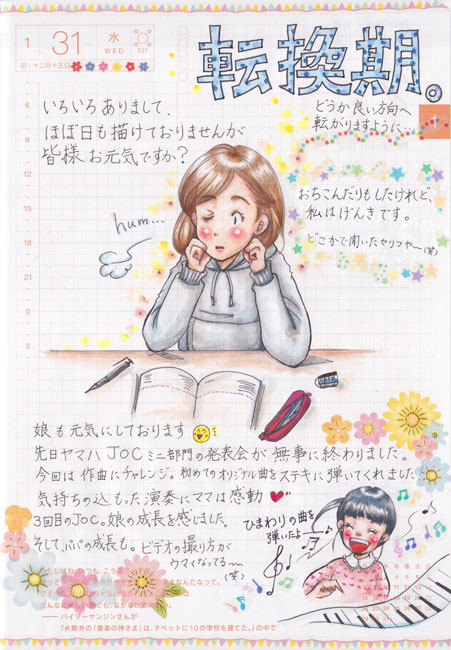 1 31 水
WED 031
旧:十二月十五日
転換期。
いろいろありまして、
ほぼ日も描けておりませんが
皆様お元気ですか?
どうか良い方向へ
転がりますように…
1
おちこんだりもしたけれど、
私はげんきです。
どこかで聞いたセリフや〜(笑)
hum...
6
9
12
15
18
21
0
3
娘も元気にしております
先日ヤマハJOCミニ部門の発表会が無事に終わりました。
今回は作曲にチャレンジ。初めてのオリジナル曲をステキに弾いてくれました
気持ちの込もった演奏にママは感動
3回目のJOC。娘の成長を感じました。
そして、パパの成長も。ビデオの撮り方が
ウマイなってる〜
(笑)
ひまわりの曲を
弾いたよ
—— バイマーヤンジンさんが
『大軽井の「音楽の神さま」は、チベットに10の学校を建てた。』の中で